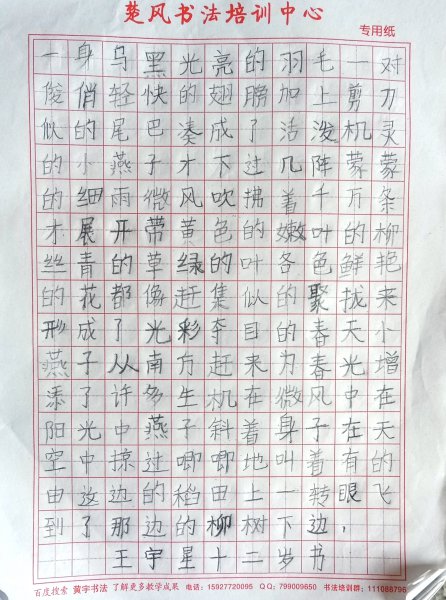 楚风书法培训中心
专用纸
一身乌黑光亮的羽毛一对
俊俏轻快的翅膀加上剪刀
似的尾巴凑成了活泼机灵
的小燕子才下过几阵蒙蒙
的细雨微风吹拂着千万条
才展开带黄色的嫩叶的柳
丝青的草绿的叶各色鲜艳
的花都像赶集似的聚拢来
形成了光彩夺目的春天小
燕子从南方赶来为春光增
添了许多生机在微风中在
阳光中燕子斜着身子在天
空中掠过唧唧地叫着有的
由这边的稻田上一转眼飞
到了那边的柳树下边，
王宇星十二岁书
百度搜索 黄字书法 了解更多教学成果 电话：15927720095 QQ：799009650 书法培训群：111088796